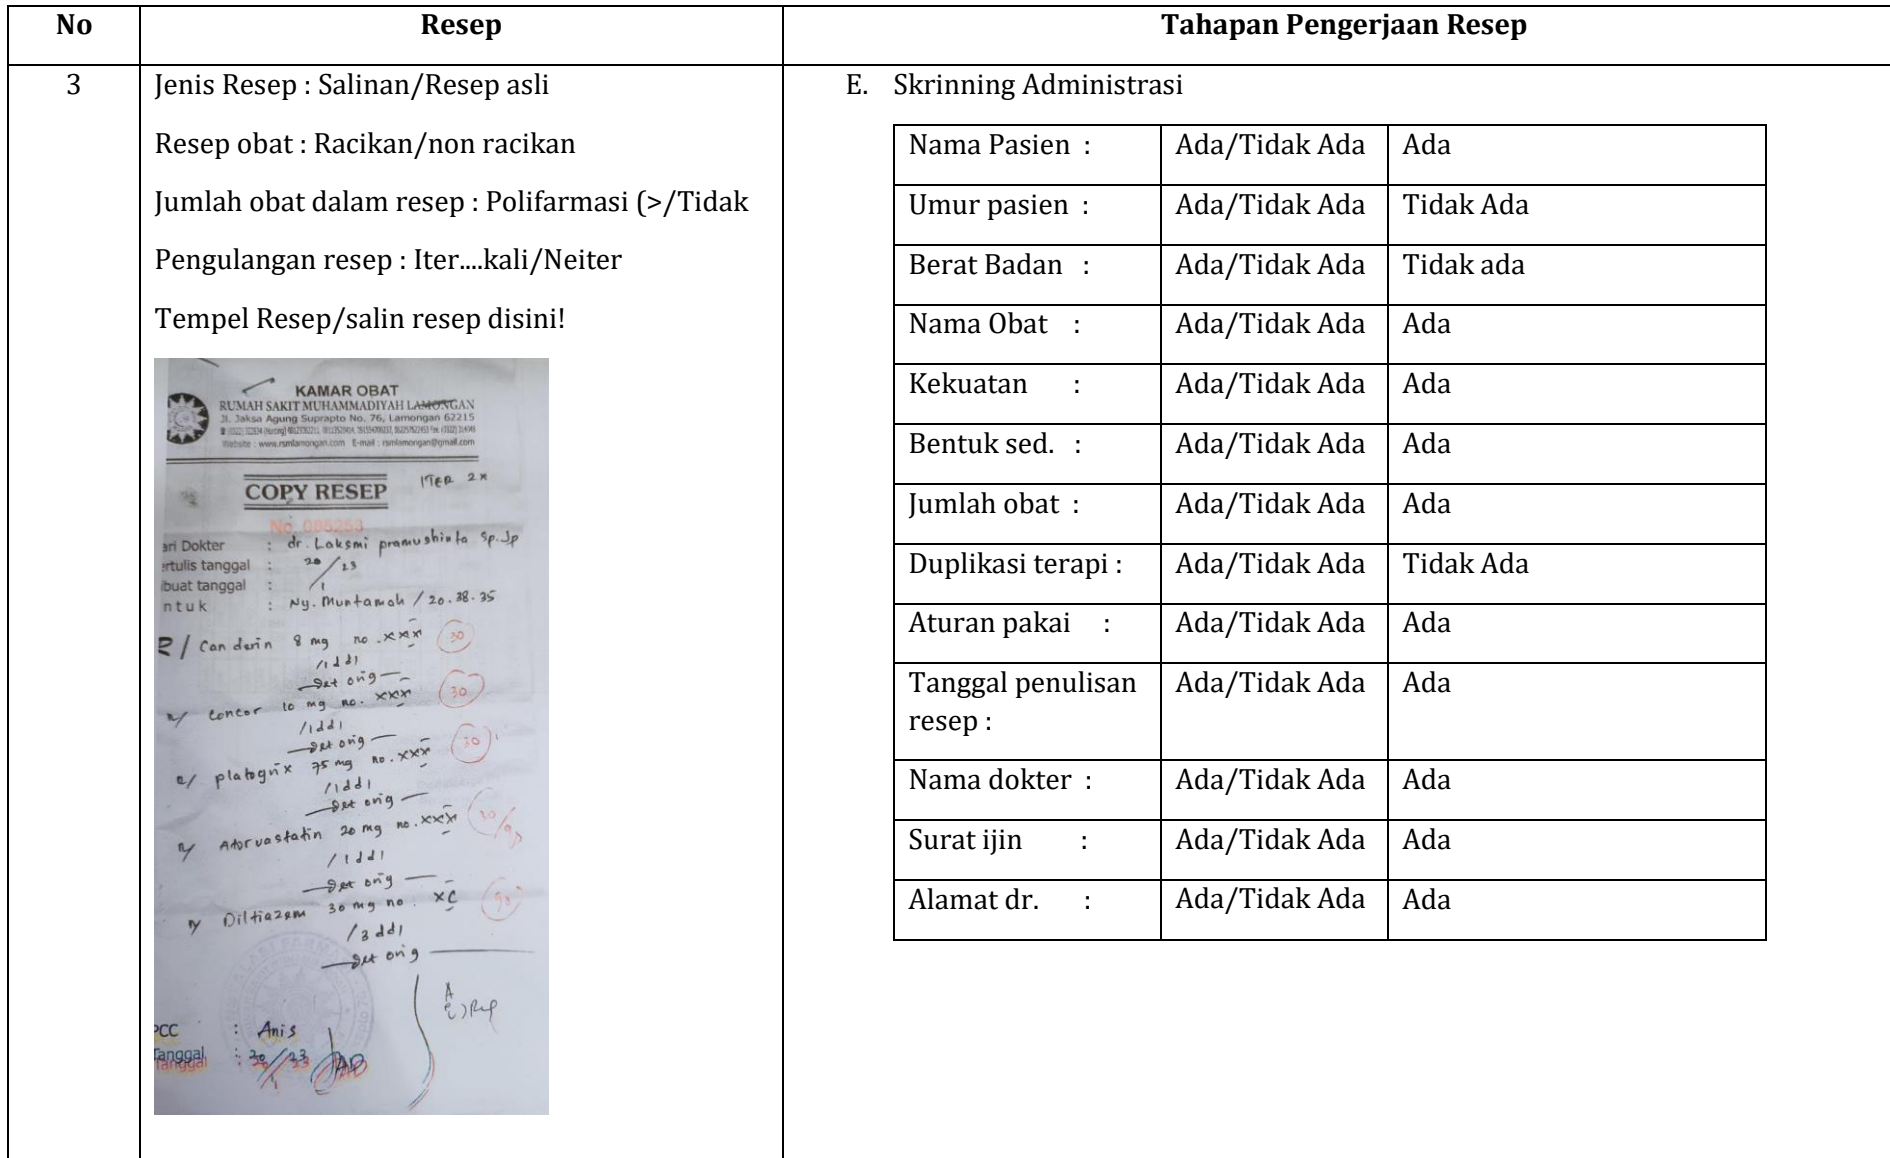 No Resep Tahapan Pengerjaan Resep
3
Jenis Resep : Salinan/Resep asli
Resep obat : Racikan/non racikan
Jumlah obat dalam resep : Polifarmasi (>/Tidak
Pengulangan resep : Iter....kali/Neiter
Tempel Resep/salin resep disini!
KAMAR OBAT
RUMAH SAKIT MUHAMMADIYAH LAMONGAN
Jl. Jaksa Agung Suprapto No. 76, Lamongan 62215
Website : www.rsmlamongan.com E-mail : rsmlamongan@gmail.com
COPY RESEP
ITER 2x
No. 085253
ari Dokter : dr. Laksmi pramushinta Sp.Jp
ertulis tanggal : 20/23
ibuat tanggal : /1
ntuk : Ny. Muntamah / 20.38.35
R/ Canderin 8 mg no. xxx 30
/1dd1
det orig
R/ Concor 10 mg no. xxx 30
/1dd1
det orig
R/ platogrix 75 mg no. xxx 30
/1dd1
det orig
R/ Atorvastatin 20 mg no. xxx
/1dd1
det orig
R/ Diltiazem 30 mg no. xC 90
/3dd1
det orig
PCC : Anis
Tanggal : 20/23
1
E. Skrinning Administrasi
Nama Pasien : Ada/Tidak Ada Ada
Umur pasien : Ada/Tidak Ada Tidak Ada
Berat Badan : Ada/Tidak Ada Tidak ada
Nama Obat : Ada/Tidak Ada Ada
Kekuatan : Ada/Tidak Ada Ada
Bentuk sed. : Ada/Tidak Ada Ada
Jumlah obat : Ada/Tidak Ada Ada
Duplikasi terapi : Ada/Tidak Ada Tidak Ada
Aturan pakai : Ada/Tidak Ada Ada
Tanggal penulisan Ada/Tidak Ada Ada
resep :
Nama dokter : Ada/Tidak Ada Ada
Surat ijin : Ada/Tidak Ada Ada
Alamat dr. : Ada/Tidak Ada Ada